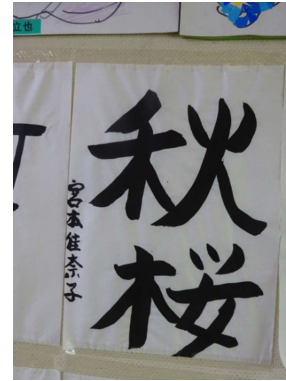 立也
秋桜
宮本佳奈子